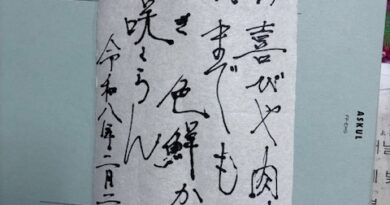 喜びや肉
までも
き 色鮮か
咲くらん
令和八年二月二
ASKUL